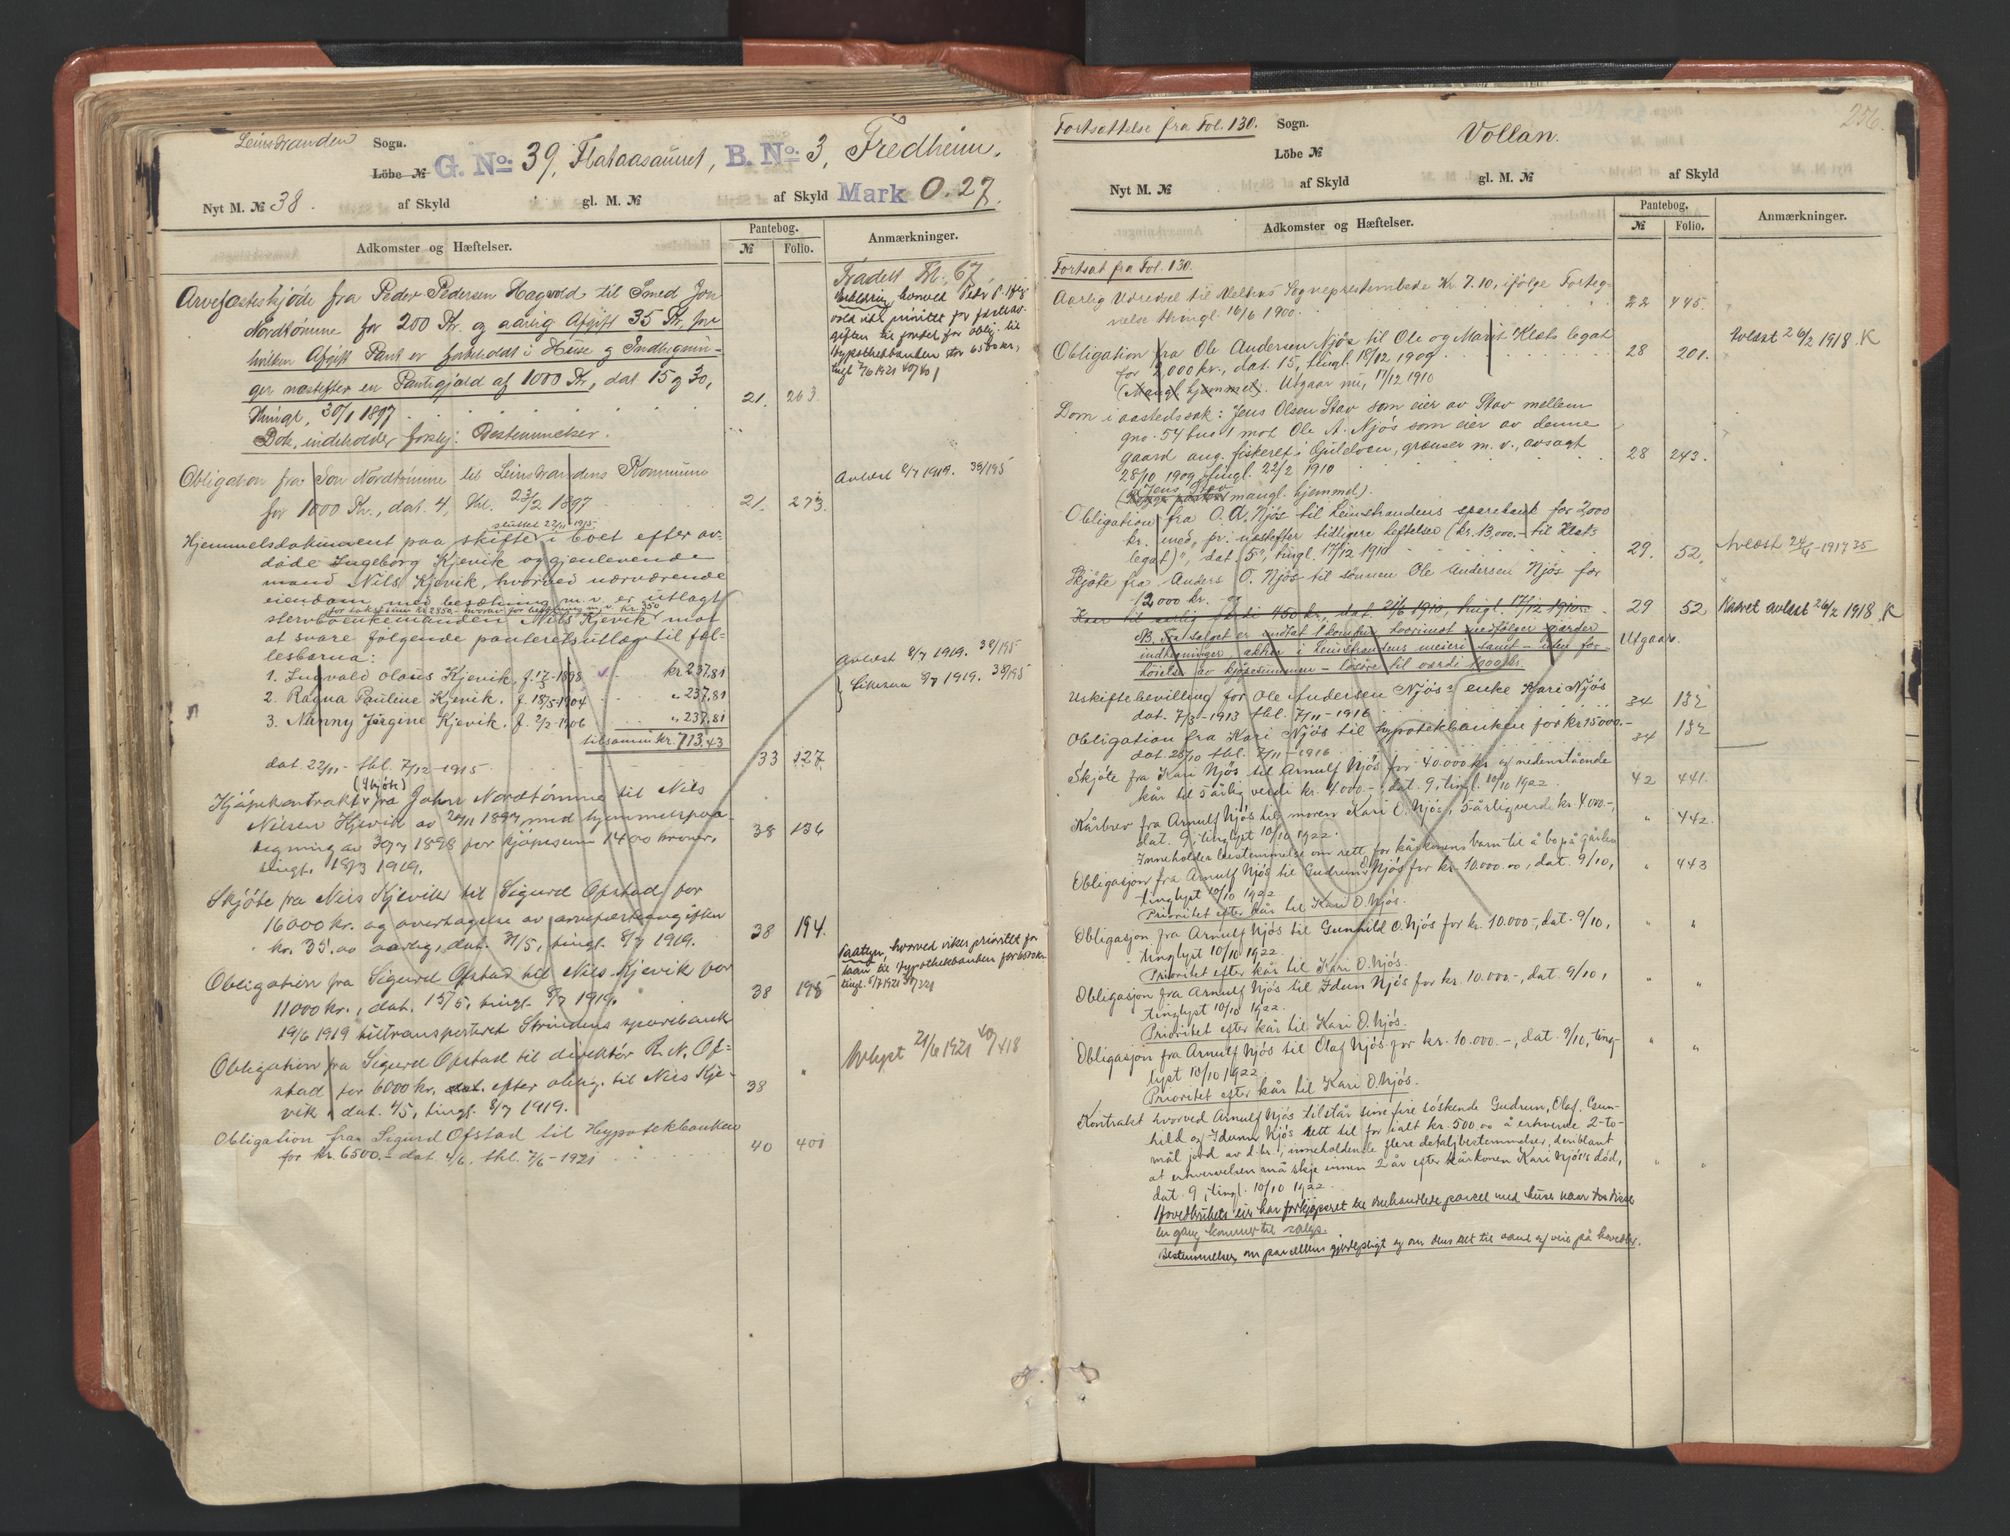 Leinstranden Sogn.
Löbe № G. No: 39, Flataasaunet, B. No: 3, Fredheim.
Nyt M. № 38. af Skyld gl. M. № af Skyld Mark 0.27.
Adkomster og Hæftelser. Pantebog. № Folio. Anmærkninger.
Arvefæsteskjøde fra Peder Pedersen Hagvold til Smed Jon
Nordtømme for 200 Kr. og aarlig Afgift 35 Kr., for
hvilken Afgift Pant er forbeholdt i Huse og Indhegnin-
ger næstefter en Pantegjæld af 1000 Kr., dat 15 og 30,
thingl. 30/1 1897 21. 263.
Dok. indeholder forskj: Bestemmelser.
Fradelt Bl. 67.
hvorved Peder P. Hag-
vold
Hypothekbanken stor 6500 kr.,
tingl 7/6 1921 40/401
Obligation fra Jon Nordtømme til Leinstrandens Kommune
for 1000 Kr., dat. 4, thl. 23/2 1897 21. 273.
Avlæst 8/7 1919. 38/195
sluttet 22/11 1915
Hjemmelsdokument paa skifte i boet efter av-
døde Ingeborg Kjevik og gjenlevende
mand Nils Kjevik, hvorved nærværende
eiendom med besætning m.v. er utlagt
for takstsum kr. 2850.- hvorav for besætning m.v. kr. 350
stervboenkemanden Nils Kjevik mot
at svare følgende panteretsutlæg til fæl-
lesbarna:
1. Ingvald Olaus Kjevik, f. 17/3-1898 kr 237,81
2. Ragna Pauline Kjevik, f. 18/5-1904 " 237,81
3. Nanny Jørgine Kjevik, f. 2/2-1906 " 237,81
tilsammen kr. 713,43
dat. 22/11- thl. 7/12-1915 33 127
Avlæst 8/7 1919. 38/195
Likesaa 8/7 1919. 38/195
(Skjøte)
Kjøpekontrakt fra John Nordtømme til Nils
Nielsen Kjevik av 20/11 1897 med hjemmelspaa-
tegning av 30/7 1898 for kjøpesum 1400 kroner,
tingl. 18/3 1919. 38 136
Skjøte fra Nils Kjevik til Sigurd Ofstad for
16000 kr. og overtagelse av arvefæsteavgiften
kr. 35.00 aarlig, dat. 31/5, tingl. 8/7 1919. 38 194.
Obligation fra Sigurd Ofstad til Nils Kjevik for
11000 kr., dat. 15/5, tingl. 8/7 1919. 38 195
19/6 1919 tiltransporteret Strindens sparebank
Paategn, hvorved viker prioritet for
laan til Hypothekbanken for 6500 kr.
tingl. 5/7 1921
Obligation fra Sigurd Ofstad til direktør R. N. Of-
stad for 6000 kr, efter oblig. til Nils Kje-
vik, dat. 4/5, tingl. 8/7 1919. 38 "
Avlyst 21/6 1921 40/418
Obligation fra Sigurd Ofstad til Hypotekbanken
for kr. 6500.- dat. 4/6. thl. 7/6-1921 40 401
256.
Fortsættelse fra Fol. 130. Sogn. Vollan.
Löbe №
Nyt M. № af Skyld gl. M. № af Skyld
Adkomster og Hæftelser. Pantebog. № Folio. Anmærkninger.
Fortsat fra Fol. 130.
Aarlig Udredsel til Melhus Sogneprestembede Kr. 7.10, ifølge Forteg-
nelse thingl. 16/6 1900. 22 445.
Obligation fra Ole Andersen Njøs til Ole og Marit Klæts legat
for 12,000 kr., dat. 15, tingl. 18/12 1909 28 201.
(Mangl. hjemmel). Utgaar nu, 17/12 1910
Avlæst 26/2 1918. K
Dom i aastedssak: Jens Olsen Stav som eier av Stav mellem
gno. 54 bno 1 mot Ole A. Njøs som eier av denne
gaard ang. fiskeret i Gulelven, grænser m.v., avsagt
28/10 1909, tingl. 22/2 1910 28 243.
(Jens Stav mangl. hjemmel).
Obligation fra O. A. Njøs til Leinstrandens sparebank for 2,000
kr. med „pr. næstefter tidligere heftelser (kr. 13,000.- til Klæts
legat)", dat. 5, tingl. 17/12 1910 29. 52.
Avlæst 24/4-1917 35
Skjøte fra Anders O. Njøs til sønnen Ole Andersen Njøs for
12000 kr. og
Kaar til aarlig værdi 450 kr., dat. 21/6 1910, tingl. 17/12 1910. 29 52.
Kaaret avlæst 26/2 1918. K
NB. Fra salget er undtat 1 kornske hvorimot medfølger gjærder
indhegninger aktier i Leinstrandens meieri samt – uten for-
høielse av kjøpesummen – løsøre til værdi 1000 kr. Utgaar.
Uskiftebevilling for Ole Andersen Njøs's enke Kari Njøs
dat. 7/3-1913 thl. 7/11-1916 34 132
Obligation fra Kari Njøs til Hypotekbanken for kr. 15000.-
dat. 25/10 thl. 7/11-1916 34 132
Skjøte fra Kari Njøs til Arnulf Njøs for 40.000 kr og nedenstående
kår til 5 årlig verdi kr. 4000.-, dat. 9, tingl. 10/10 1922. 42 441.
Kårbrev fra Arnulf Njøs til moren Kari O. Njøs, 5 årlig verdi kr. 4000.-,
dat. 9, tinglyst 10/10 1922. " 442.
Inneholder bestemmelse om rett for kårkonens barn til å bo på gården
Obligasjon fra Arnulf Njøs til Gudrun O. Njøs for kr. 10.000.00, dat. 9/10,
tinglyst 10/10 1922 " 443
Prioritet efter kår til Kari O. Njøs.
Obligasjon fra Arnulf Njøs til Gunhild O. Njøs for kr. 10.000-, dat. 9/10,
tinglyst 10/10 1922. " "
Prioritet efter kår til Kari O. Njøs.
Obligasjon fra Arnulf Njøs til Idun Njøs for kr. 10.000-, dat. 9/10,
tinglyst 10/10 1922. " "
Prioritet efter kår til Kari O. Njøs.
Obligasjon fra Arnulf Njøs til Olaf Njøs for kr. 10.000.-, dat. 9/10, ting-
lyst 10/10 1922. " "
Prioritet efter kår til Kari O. Njøs.
Kontrakt hvorved Arnulf Njøs tilstår sine fire søskende Gudrun, Olaf, Gun-
hild og Idunn Njøs rett til for ialt kr. 500.00 å erhverve 2-to-
mål jord av d.br., inneholdende flere detaljbestemmelser, deriblant
at erhvervelsen må skje innen 2 år efter kårkonen Kari Njøs's død,
dat. 9, tingl. 10/10 1922. " "
Hovedbrukets eier har forkjøpsret til omhandlede parcel med huse naar den
en gang kommer til salgs.
Bestemmelser om parcellens gjerdepligt og om dens ret til vand og vei på hovedbr.